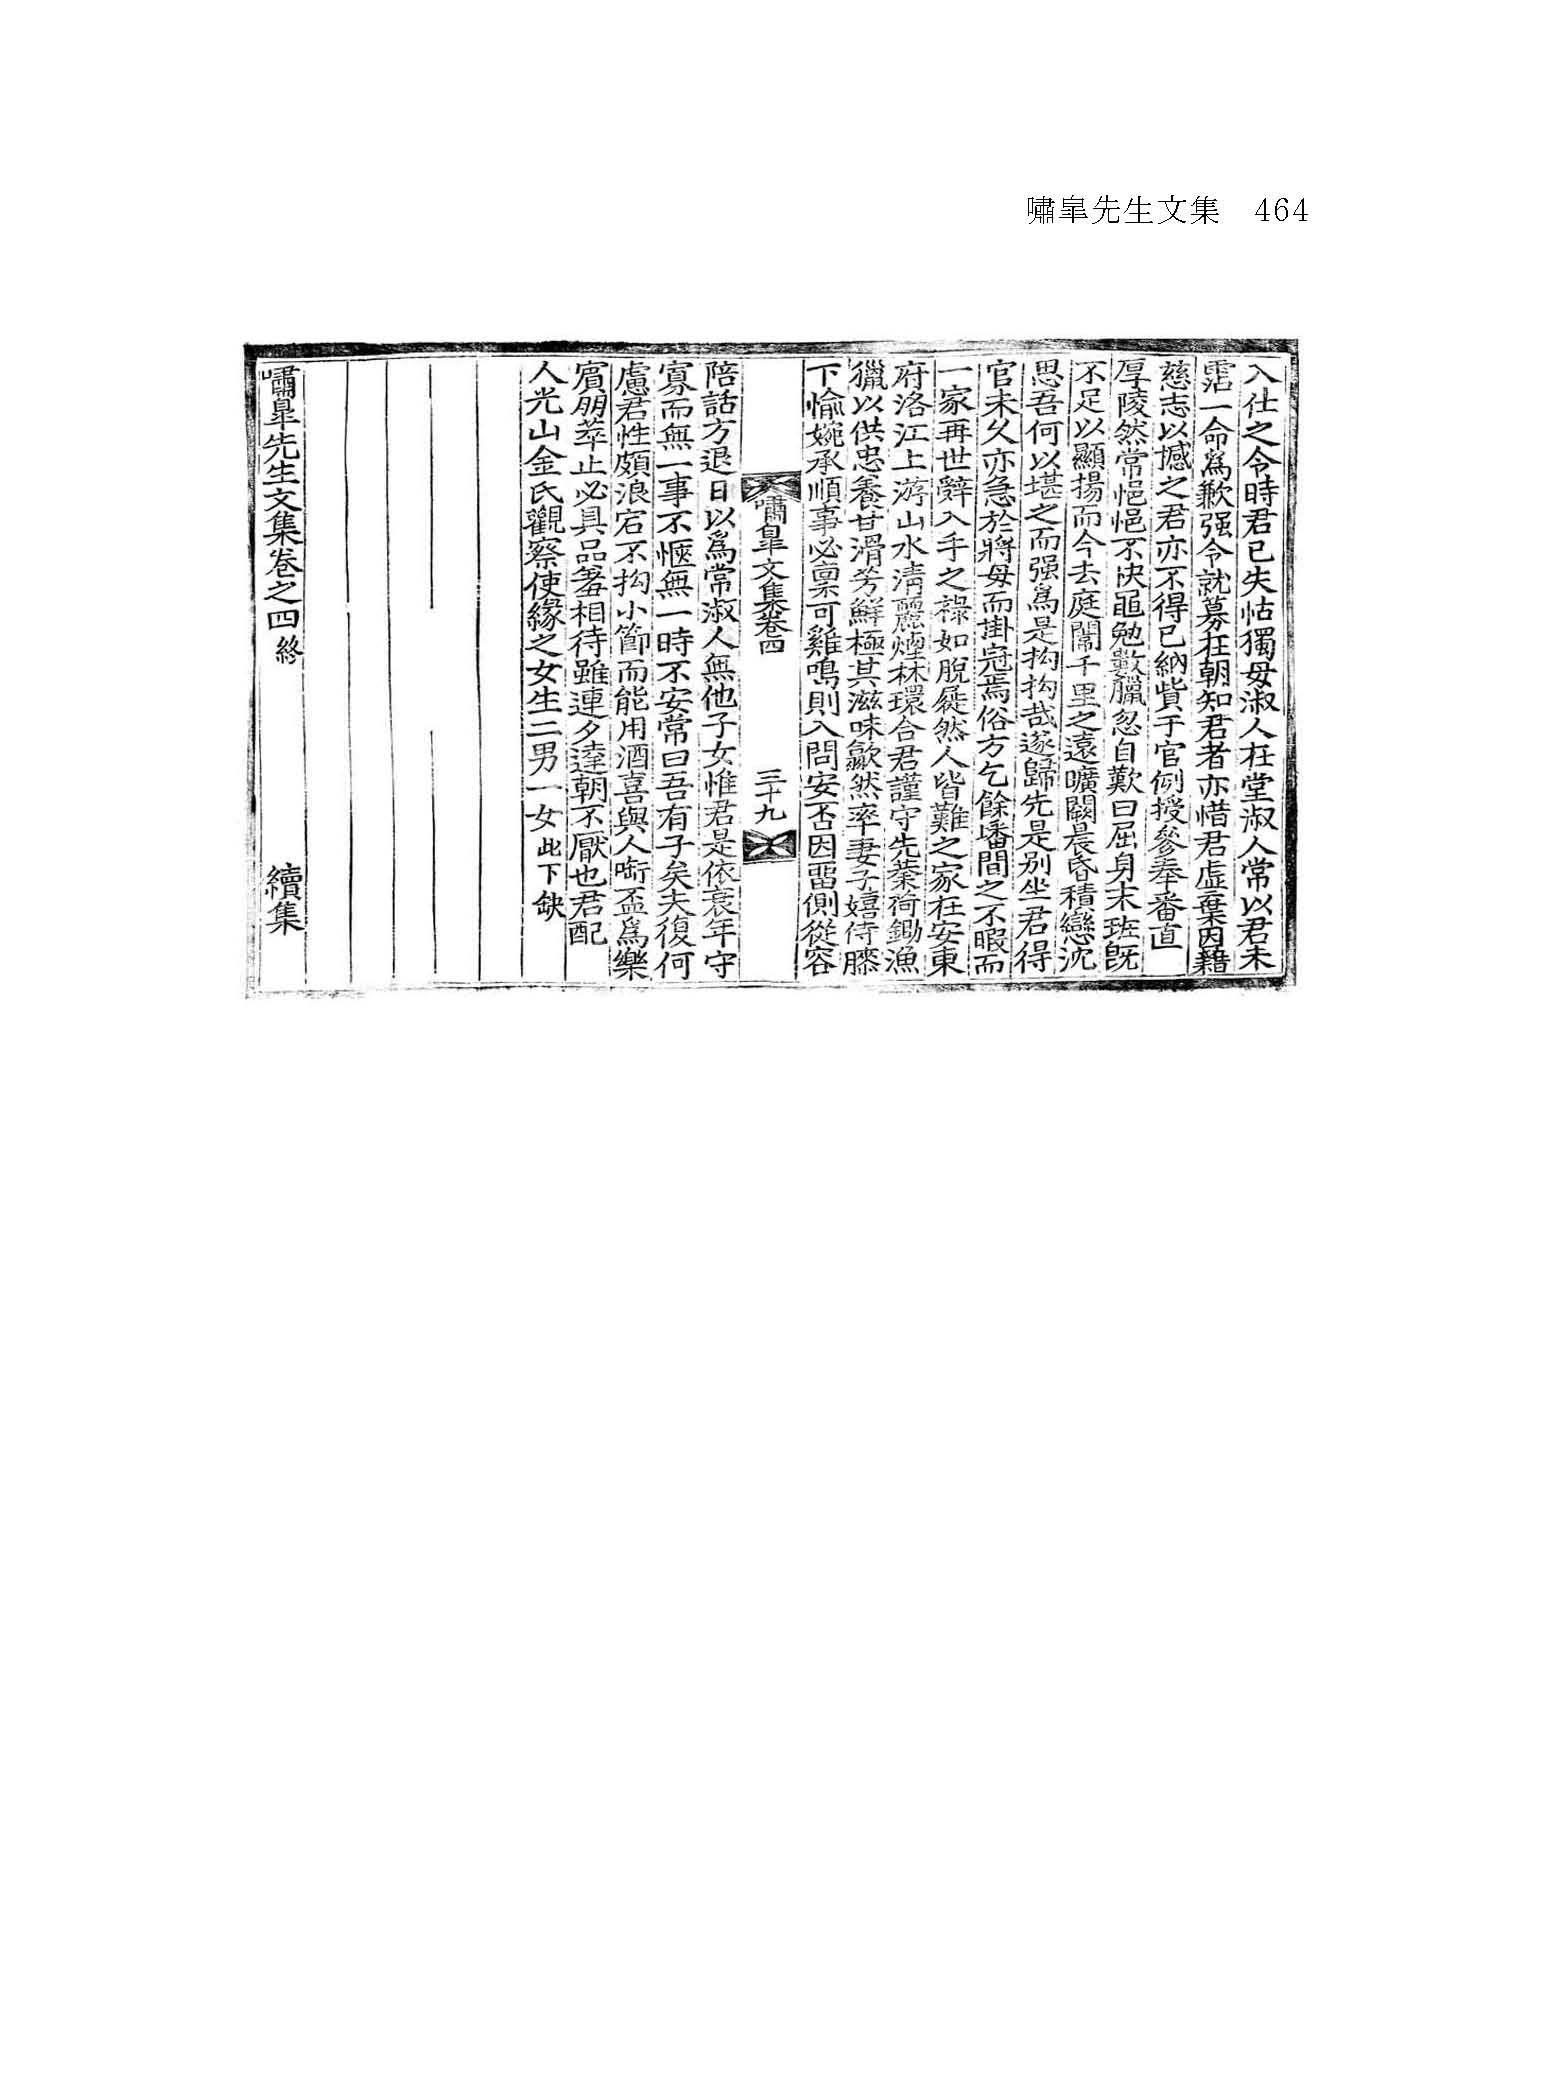 嘯皐先生文集 464
入仕之令時君已失怙獨母淑人在堂淑人常以君未
霑一命爲歉强令就募在朝知君者亦惜君虛棄因藉
慈志以撼之君亦不得已納貲于官例授參奉番直
厚陵然常悒悒不快黽勉數臘忽自歎曰屈身末班旣
不足以顯揚而今去庭闈千里之遠曠闕晨昏積戀沈
思吾何以堪之而强爲是拘拘哉遂歸先是別坐君得
官未久亦急於將母而掛冠焉俗方乞餘墦間之不暇而
一家再世辭入手之祿如脫屣然人皆難之家在安東
府洛江上游山水淸麗煙林環合君謹守先業荷鋤漁
獵以供忠養甘滑芳鮮極其滋味歙然率妻子嬉侍膝
下愉婉承順事必稟可雞鳴則入問安否因留側從容
嘯皐文集卷四 三十九
陪話方退日以爲常淑人無他子女惟君是依衰年守
寡而無一事不愜無一時不安常曰吾有子矣夫復何
慮君性頗浪宕不拘小節而能用酒喜與人啣盃爲樂
賓朋萃止必具品羞相待雖連夕達朝不厭也君配
人光山金氏觀察使緣之女生三男一女此下缺
嘯皐先生文集卷之四終 續集